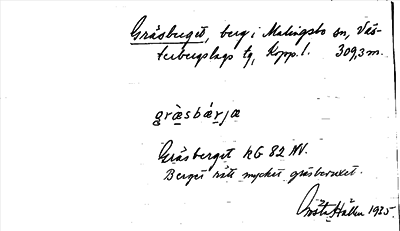 Gräsberget, berg i Malingsbo sn, Väs-
terbergslags tg, Kopp. l. 309,3 m.
græ̀sbæ̀rjæ
Gräsberget kG 82 NV.
Berget rätt mycket gräsbevuxet.
Gösta Hallen 1935